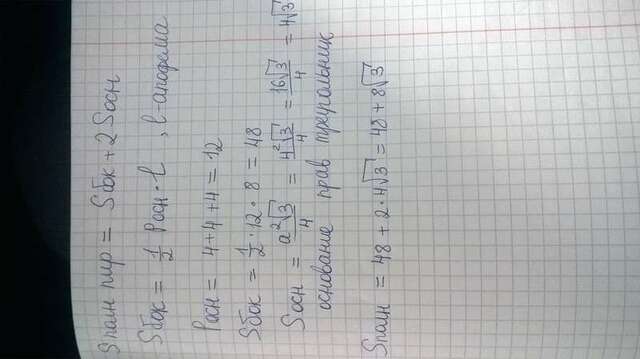 Sполн пир = Sбок + 2 Sосн
Sбок = 1/2 Pосн · l , l-апофема
Pосн = 4+4+4 = 12
Sбок = 1/2 · 12 · 8 = 48
Sосн = a²√3/4 = 4²√3/4 = 16√3/4 = 4√3
основание прав треугольник
Sполн = 48 + 2 · 4√3 = 48 + 8√3